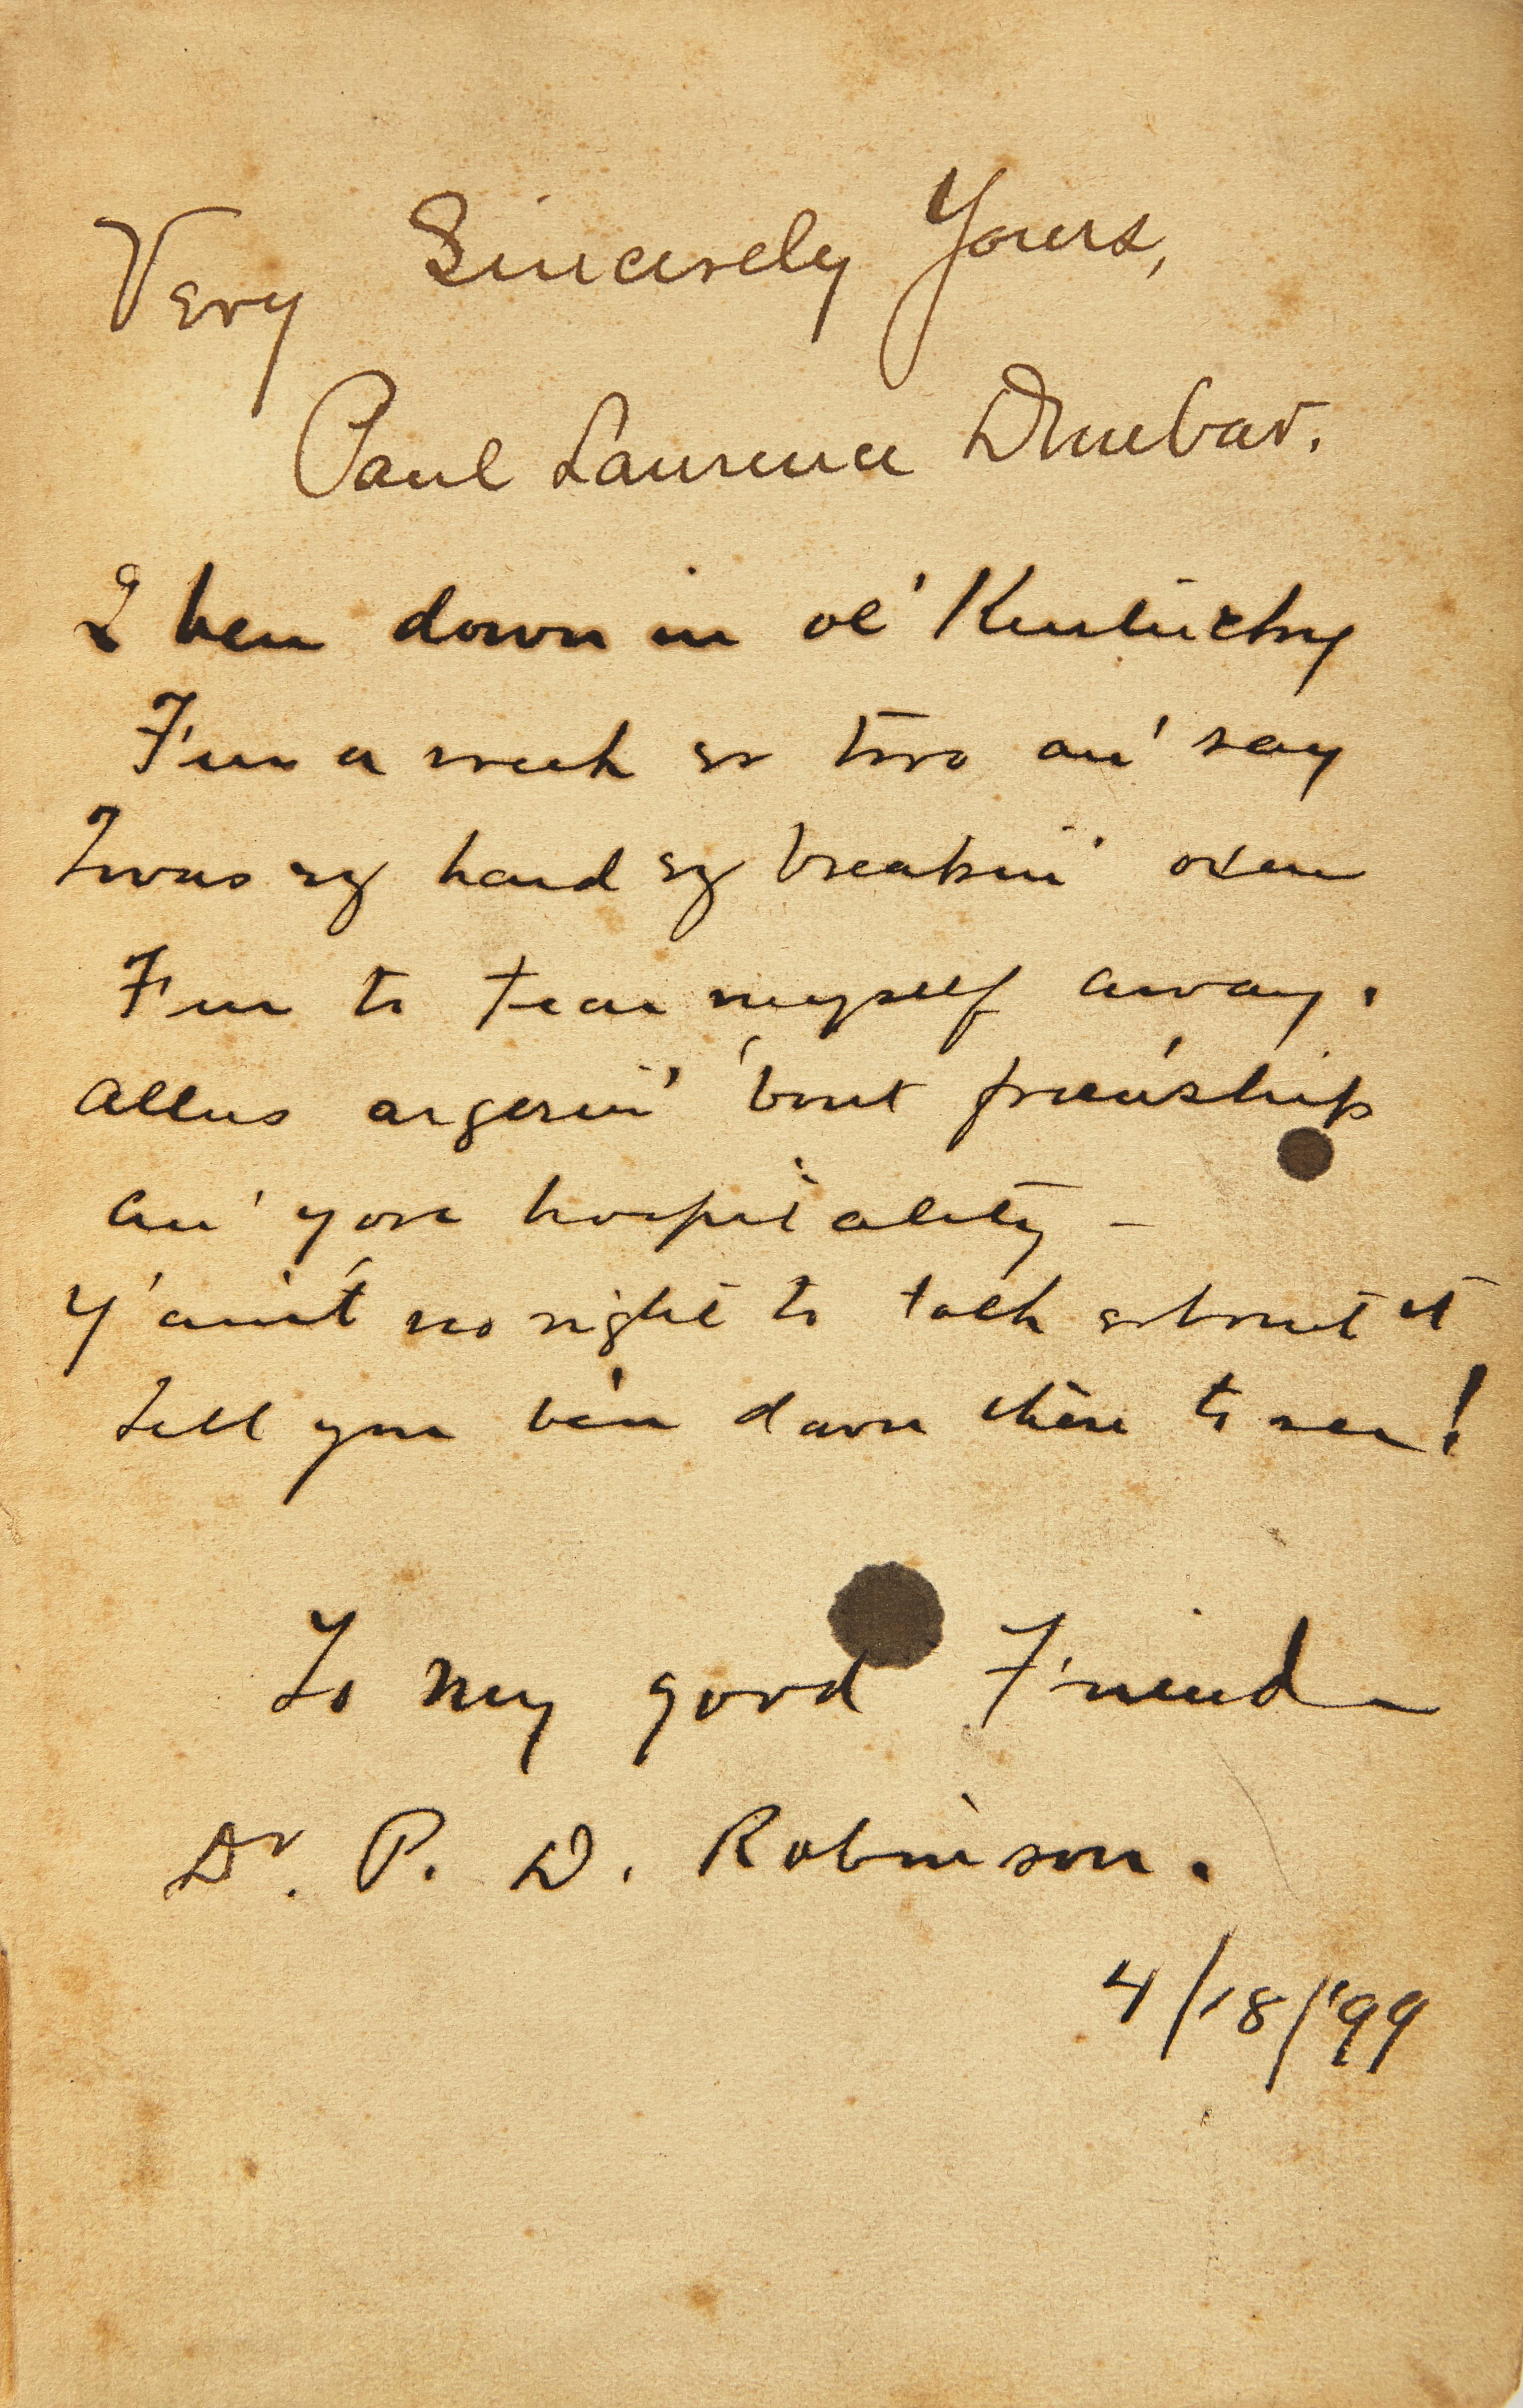 Very Sincerely Yours,
Paul Laurence Dunbar.
I ben down in ol' Kentucky
Fur a week or two an' say
Twas ez hard ez breakin' oxen
Fur to tear myself away.
Allus argerin' 'bout frien'ship
An' yore hospitality –
Y' ain't no right to talk about it
Tell you be'n down there to see!
To my good Friend
Dr. P. D. Robinson.
4/18/'99